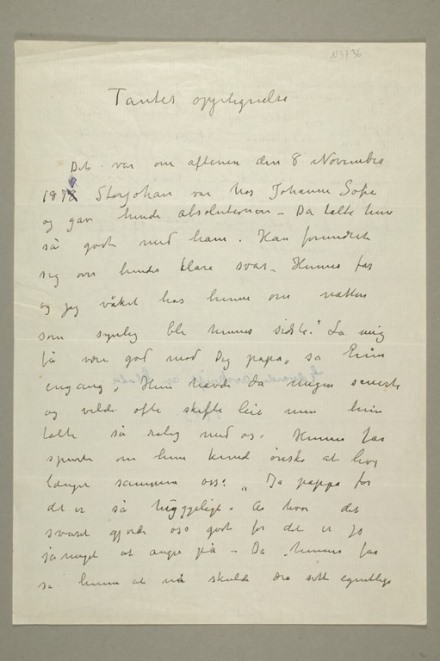 N3736
Tantes opptegnelse
Det var om aftenen den 8 November
Storjohan var hos Johanne Sofie
og gav hende absolutionen - Da talte hun
så godt med ham. Han forundret
sig over hendes klare svar - Hennes far
og jeg våket hos henne om natten
som synlig ble hennes sidste. " La mig
få være god med Dig papa, sa
engang, Hun havde da megen smerte
og vilde ofte skifte leie men hun
talte så rolig med os. Hennes far
spurte om hun kunde ønske at leve
længer sammen oss? " Ja pappa for
det er så hyggeligt. Å hvor det
svaret gjorde oss godt for det er jo
så meget at angre på - Da hennes far
sa henne at nå skulde dra sitt egentlige